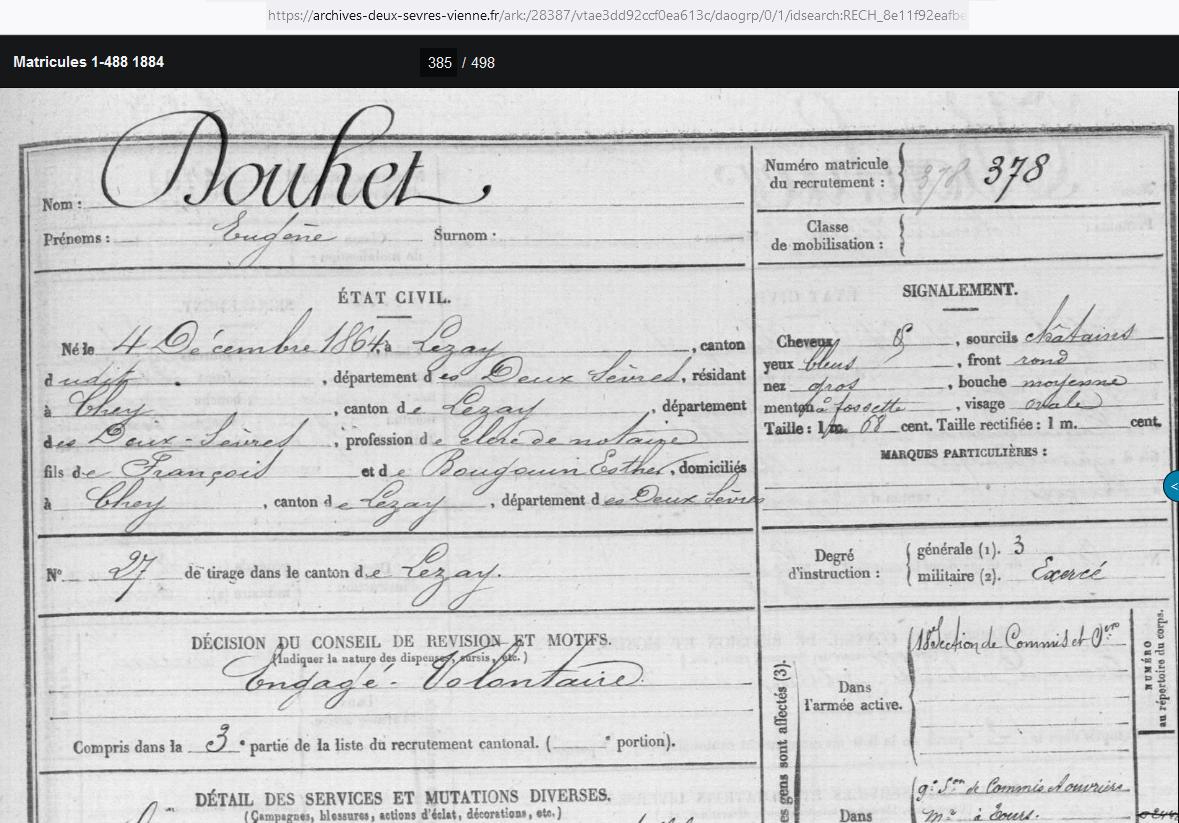 https://archives-deux-sevres-vienne.fr/ark:/28387/vtae3dd92ccf0ea613c/daogrp/0/1/idsearch:RECH_8e11f92eafbe
Matricules 1-488 1884
385 / 498
Nom : Douhet
Prénoms : Eugène Surnom :
ÉTAT CIVIL.
Né le 4 Décembre 1864, à Lezay, canton
dudit, département des Deux Sèvres, résidant
à Chey, canton de Lezay, département
des Deux-Sèvres, profession de clerc de notaire
fils de François et de Bougouin Esther, domiciliés
à Chey, canton de Lezay, département des Deux Sèvres
N° 27 de tirage dans le canton de Lezay.
DÉCISION DU CONSEIL DE REVISION ET MOTIFS.
(Indiquer la nature des dispenses, sursis, etc.)
Engagé-Volontaire
Compris dans la 3e partie de la liste du recrutement cantonal. ( e portion).
DÉTAIL DES SERVICES ET MUTATIONS DIVERSES.
(Campagnes, blessures, actions d'éclat, décorations, etc.)
Numéro matricule
du recrutement : 378 378
Classe
de mobilisation :
SIGNALEMENT.
Cheveux &, sourcils châtains
yeux bleus, front rond
nez gros, bouche moyenne
menton à fossette, visage ovale
Taille : 1 m. 68 cent. Taille rectifiée : 1 m. cent.
MARQUES PARTICULIÈRES :
Degré
d'instruction :
générale (1). 3
militaire (2). Exercé
gens sont affectés (3).
Dans
l'armée active.
Section de Commis et Ovrs
NUMÉRO
au répertoire du corps.
Dans
9e Son de Commis & ouvriers
Mre à Tours.